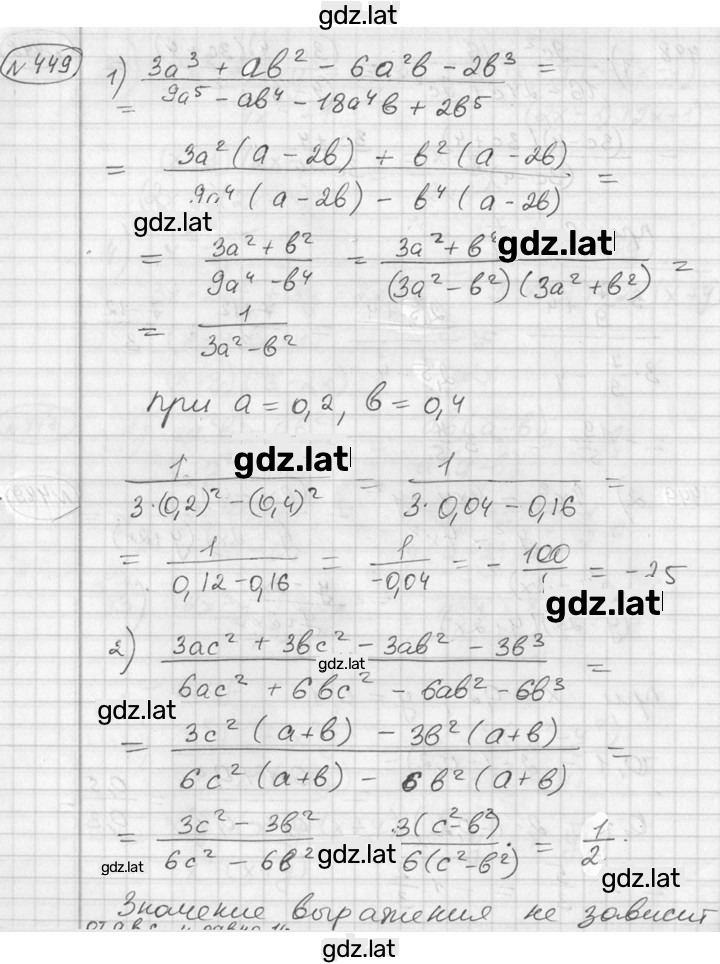 gdz.lat
№ 449
1) (3a³ + ab² − 6a²b − 2b³) / (9a⁵ − ab⁴ − 18a⁴b + 2b⁵) =
= (3a²(a − 2b) + b²(a − 2b)) / (9a⁴(a − 2b) − b⁴(a − 2b)) =
gdz.lat
= (3a² + b²) / (9a⁴ − b⁴) = (3a² + b²) / ((3a² − b²)(3a² + b²)) =
gdz.lat
= 1 / (3a² − b²)
при a = 0,2, b = 0,4
gdz.lat
1 / (3·(0,2)² − (0,4)²) = 1 / (3·0,04 − 0,16) =
= 1 / (0,12 − 0,16) = 1 / (−0,04) = − 100 / 4 = −25
gdz.lat
2) (3ac² + 3bc² − 3ab² − 3b³) / (6ac² + 6bc² − 6ab² − 6b³) =
gdz.lat
gdz.lat
= (3c²(a+b) − 3b²(a+b)) / (6c²(a+b) − 6b²(a+b)) =
= (3c² − 3b²) / (6c² − 6b²) 3(c² − b²) / 6(c² − b²) = 1/2.
gdz.lat
gdz.lat
Значение выражения не зависит
gdz.lat